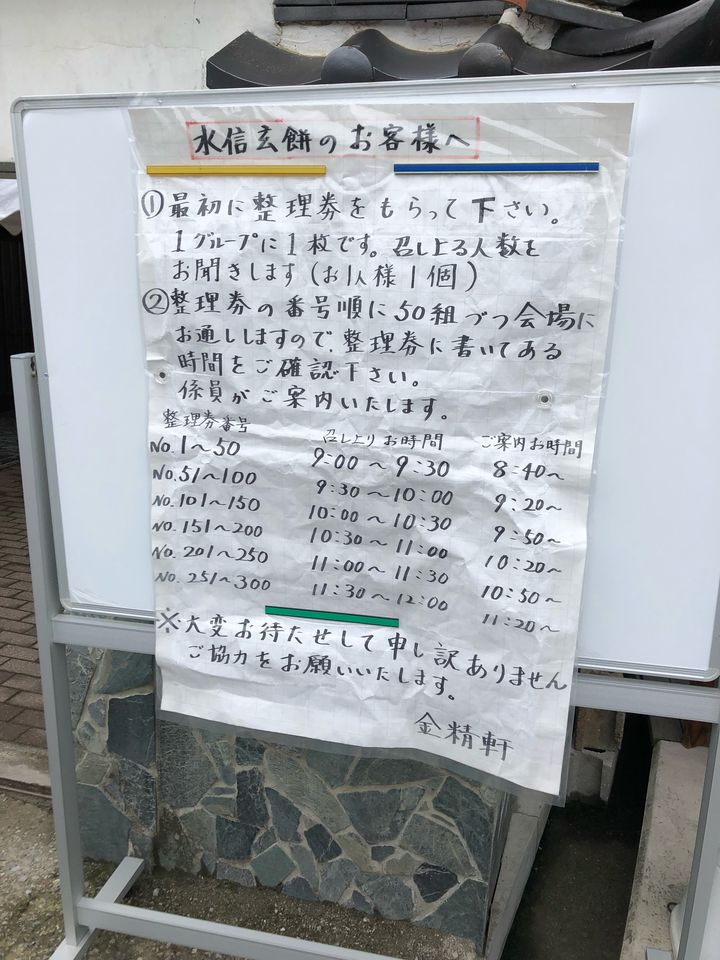 水信玄餅のお客様へ
① 最初に整理券をもらって下さい。
1グループに1枚です。召し上る人数を
お聞きします(お1人様1個)
② 整理券の番号順に50組づつ会場に
お通ししますので、整理券に書いてある
時間をご確認下さい。
係員がご案内いたします。
整理券番号 召し上りお時間 ご案内お時間
No.1~50 9:00~9:30 8:40~
No.51~100 9:30~10:00 9:20~
No.101~150 10:00~10:30 9:50~
No.151~200 10:30~11:00 10:20~
No.201~250 11:00~11:30 10:50~
No.251~300 11:30~12:00 11:20~
※大変お待たせして申し訳ありません
ご協力をお願いいたします。
金精軒